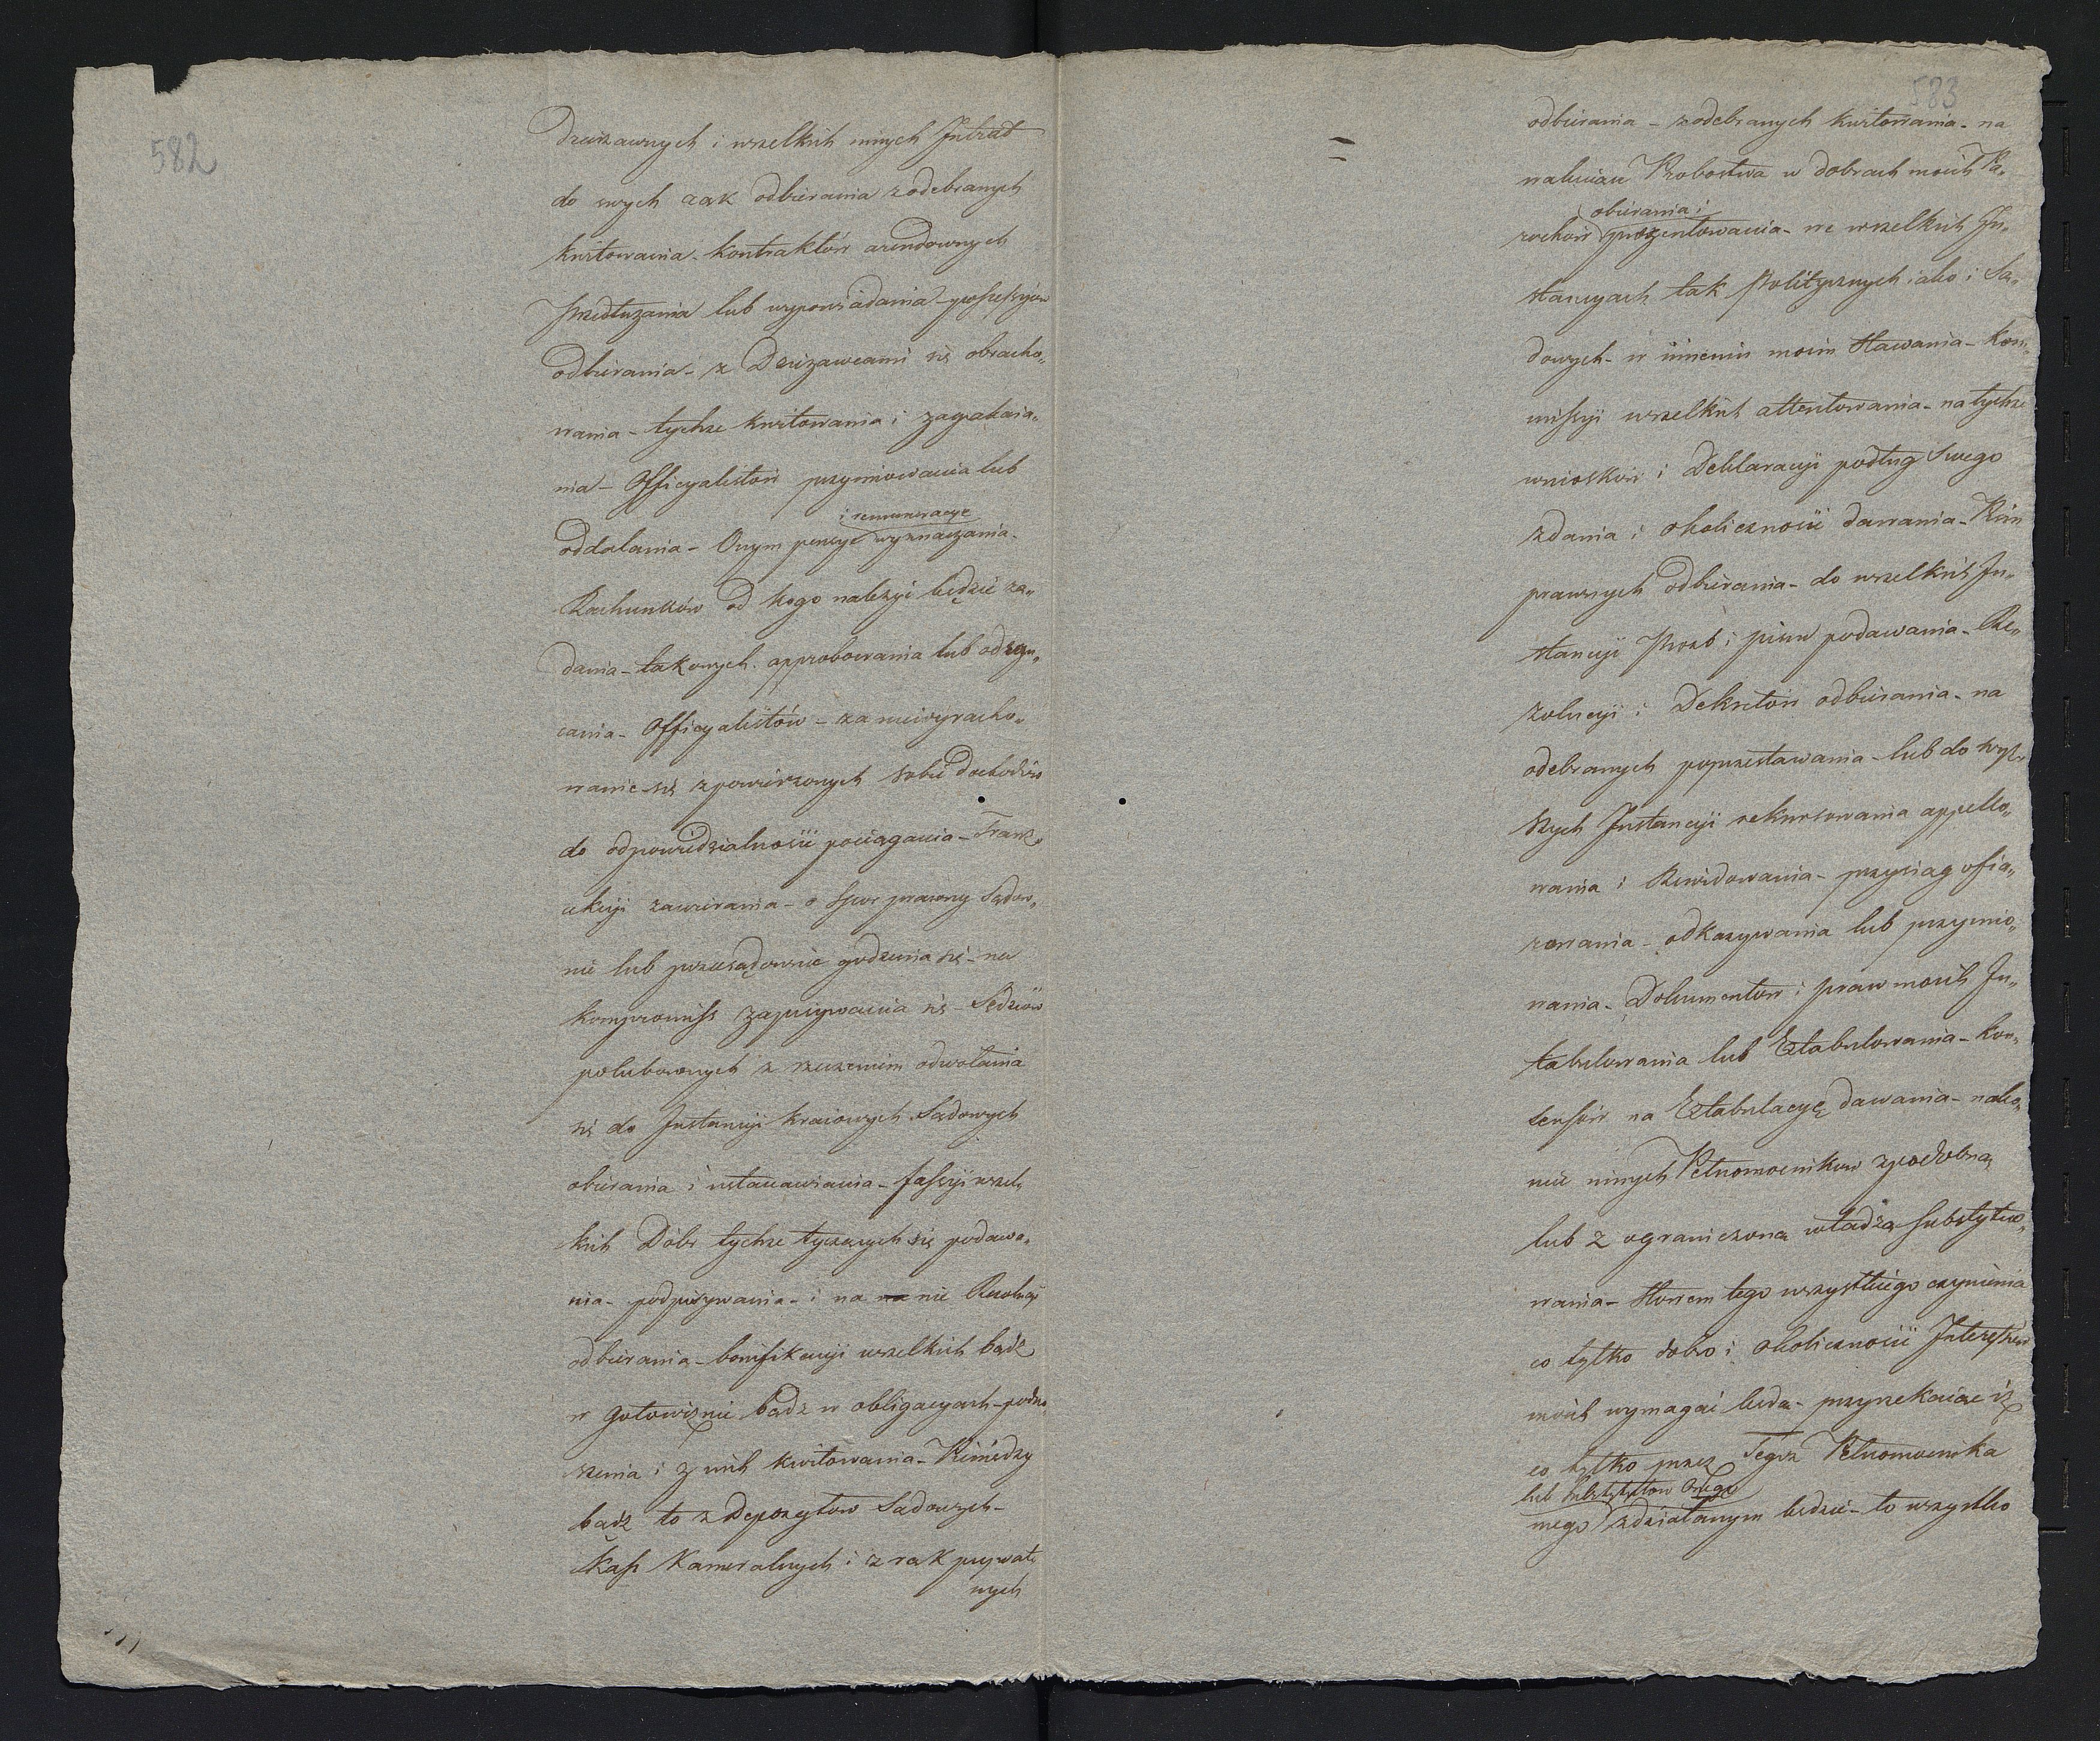 582
Dzierzawnych i wszelkich innych Intrat
do swych rąk odbierania z odebranych
kwitowania. kontraktów arendownych
przedłużania lub wypowiadania possessyow
odbierania - z Dzierżawcami się obracho„
wania - tychże kwitowania i zagrabia„
nia - Officyalistow przyimowania lub
i remuneracye
oddalania - Onym pensye wyznaczania.
Rachunków od kogo należyć będzie żą„
dania - takowych approbowania lub odrzu„
cania - Officyalistów - za niewyracho„
wanie się z powierzonych sobie dochodów
do odpowiedzialności pociągania - Tranz„
akcyi zawierania - o Spor prawny Sądow„
nie lub pozasądownie godzenia się - na
kompromiss zapisywania się - Sędziów
polubownych z rzeczeniem odwołania
się do Instancyi kraiowych Sądowych
obierania i ustanawiania - fassyi wszel„
kich Dobr tychże tyczących się podawa„
nia - podpisywania - i na nie Rezolucyi
odbierania - bonifikacyi wszelkich bądź
w gotowiznie bądź w obligacyach - podno„
szenia i z nich kwitowania - Pieniędzy
bądź to z Depozytow Sądowych -
Kass Kameralnych i z rąk prywat„
nych
583
odbierania - z odebranych kwitowania - na
Probostwa w dobrach moich Pa„
obierania i
rochow prezentowania - we wszelkich In„
stancyach tak Politycznych iako i Są„
dowych - w imieniu moim stawania - kom„
missyi wszelkich attentowania - na tychże
wnioskow i Deklaracyi podług swego
zdania i okoliczności dawania - Pism
prawnych odbierania - do wszelkich In„
stancyi Prozb i pism podawania - Re„
zolucyi i Dekretow odbierania - na
odebranych poprzestawania - lub do wyż„
szych Instancyi rekursowania appello„
wania i Rewidowania - przysiąg ofia„
rowania - odkazywania lub przyimo„
wania - Dokumentow i praw moich In„
tabulowania lub Extabulowania - kon„
sensów na Extabulacyę dawania - nako„
niec innych Pełnomocnikow z podobną
lub z ograniczoną władzą substytuo„
wania - słowem tego wszystkiego czynienia
co tylko dobro i okoliczności Interessow
moich wymagać będą - przyrzekaiąc iż
co tylko przez Tegoż Pełnomocnika
lub Substytutow Onego
mego zdziałanym będzie - to wszystko